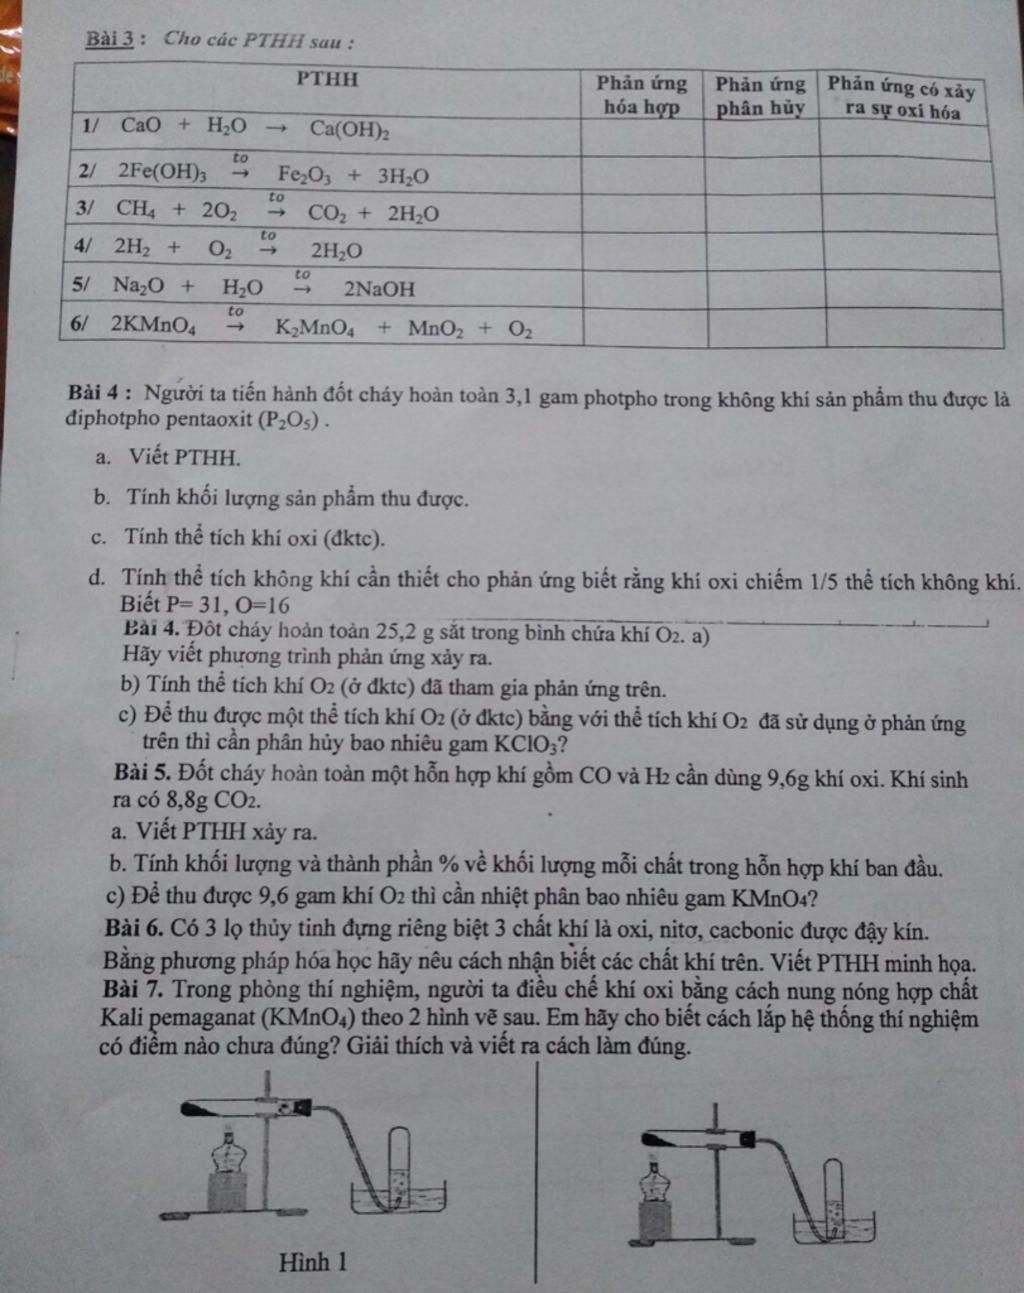 Bài 3 : Cho các PTHH sau :
PTHH
Phản ứng hóa hợp
Phản ứng phân hủy
Phản ứng có xảy ra sự oxi hóa
1/ CaO + H₂O → Ca(OH)₂
2/ 2Fe(OH)₃ to→ Fe₂O₃ + 3H₂O
3/ CH₄ + 2O₂ to→ CO₂ + 2H₂O
4/ 2H₂ + O₂ to→ 2H₂O
5/ Na₂O + H₂O to→ 2NaOH
6/ 2KMnO₄ to→ K₂MnO₄ + MnO₂ + O₂
Bài 4 : Người ta tiến hành đốt cháy hoàn toàn 3,1 gam photpho trong không khí sản phẩm thu được là
điphotpho pentaoxit (P₂O₅) .
a. Viết PTHH.
b. Tính khối lượng sản phẩm thu được.
c. Tính thể tích khí oxi (đktc).
d. Tính thể tích không khí cần thiết cho phản ứng biết rằng khí oxi chiếm 1/5 thể tích không khí.
Biết P= 31, O=16
Bài 4. Đốt cháy hoàn toàn 25,2 g sắt trong bình chứa khí O₂. a)
Hãy viết phương trình phản ứng xảy ra.
b) Tính thể tích khí O₂ (ở đktc) đã tham gia phản ứng trên.
c) Để thu được một thể tích khí O₂ (ở đktc) bằng với thể tích khí O₂ đã sử dụng ở phản ứng
trên thì cần phân hủy bao nhiêu gam KClO₃?
Bài 5. Đốt cháy hoàn toàn một hỗn hợp khí gồm CO và H₂ cần dùng 9,6g khí oxi. Khí sinh
ra có 8,8g CO₂.
a. Viết PTHH xảy ra.
b. Tính khối lượng và thành phần % về khối lượng mỗi chất trong hỗn hợp khí ban đầu.
c) Để thu được 9,6 gam khí O₂ thì cần nhiệt phân bao nhiêu gam KMnO₄?
Bài 6. Có 3 lọ thủy tinh đựng riêng biệt 3 chất khí là oxi, nitơ, cacbonic được đậy kín.
Bằng phương pháp hóa học hãy nêu cách nhận biết các chất khí trên. Viết PTHH minh họa.
Bài 7. Trong phòng thí nghiệm, người ta điều chế khí oxi bằng cách nung nóng hợp chất
Kali pemaganat (KMnO₄) theo 2 hình vẽ sau. Em hãy cho biết cách lắp hệ thống thí nghiệm
có điểm nào chưa đúng? Giải thích và viết ra cách làm đúng.
Hình 1